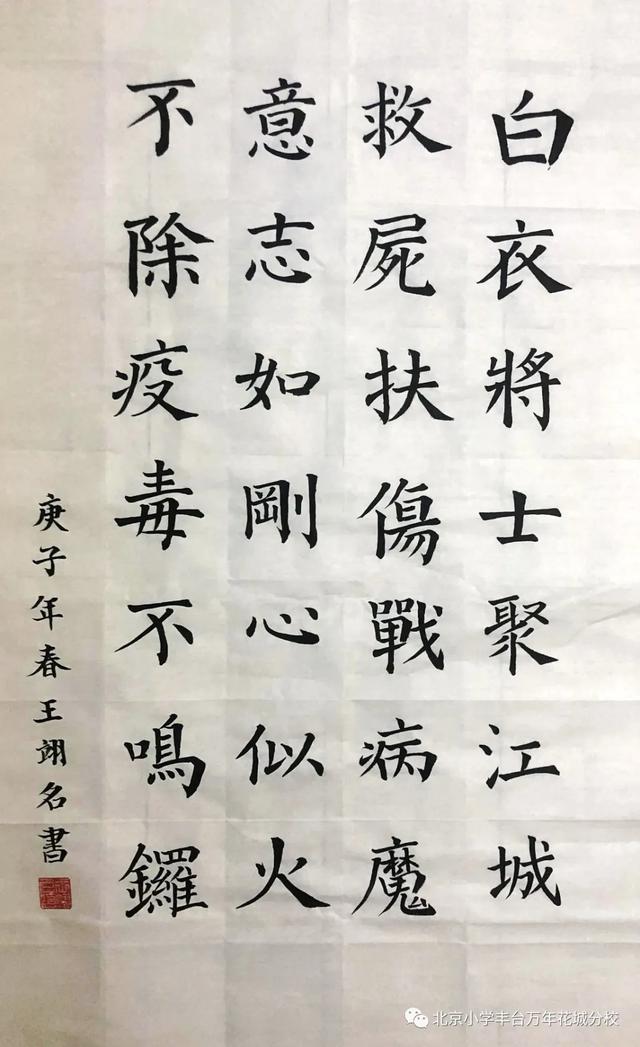 白衣將士聚江城
救屍扶傷戰病魔
意志如剛心似火
不除疫毒不鳴鑼
庚子年春王翊名書
北京小学丰台万年花城分校